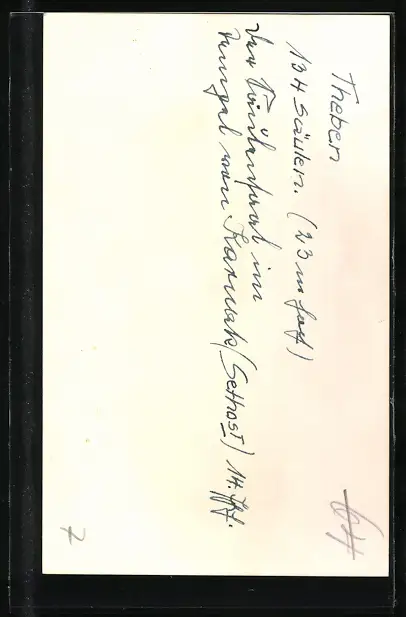 Theben
134 Säulen. (23 m hoch)
Der Säulensaal im
Tempel von Karnak (Sethos I) 14. Jh.
64
7